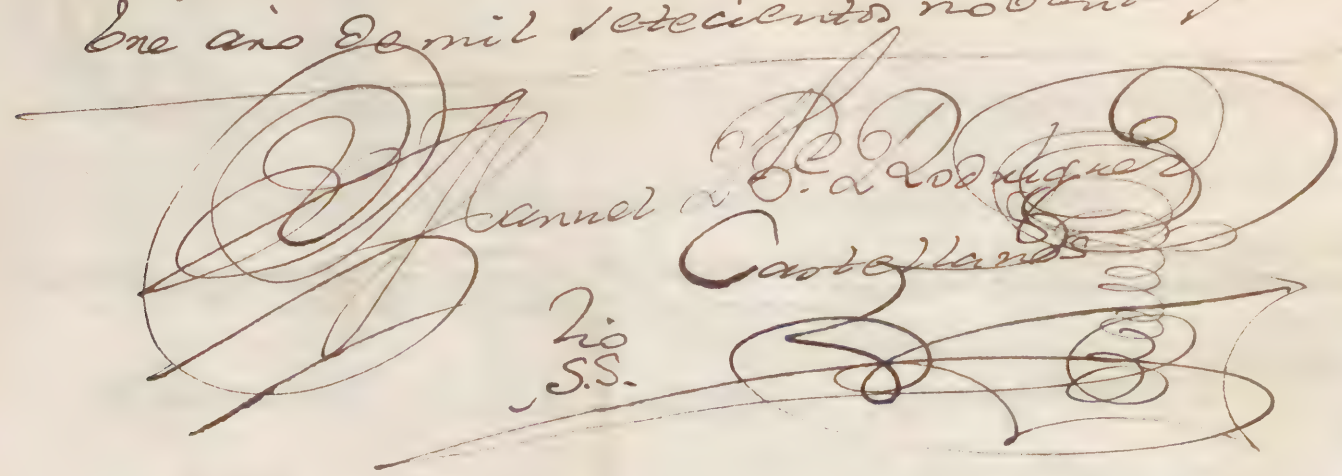 bre año de mil setecientos noventa y
Manuel
D. Rodriguez
Castellanos
Sio
S.S.